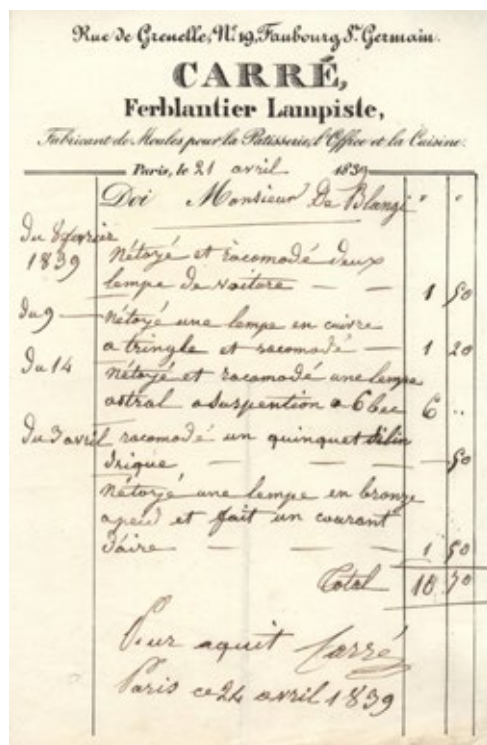 Rue de Grenelle, Nº 19, Faubourg St. Germain.
CARRÉ,
Ferblantier Lampiste,
Fabricant de Moules pour la Pâtisserie, l'Office et la Cuisine.
Paris, le 21 avril 1839
Doi Monsieur De Blangi " "
du 8 fevrier
1839 Nétoyé et racomodé deux
lempe de voiture — — 1 50
du 9 — Nétoyé une lempe en cuivre
a tringle et racomodé — 1 20
du 14 Nétoyé et racomodé une lempe
astral a suspention a 6 bec 6 "
du 3 avril racomodé un quinquet silin
drique — — — — 50
Nétoyé une lempe en bronze
apeid et fait un courant
daire — — — 1 50
Total 10 70
Pour aquit Carré
Paris ce 24 avril 1839